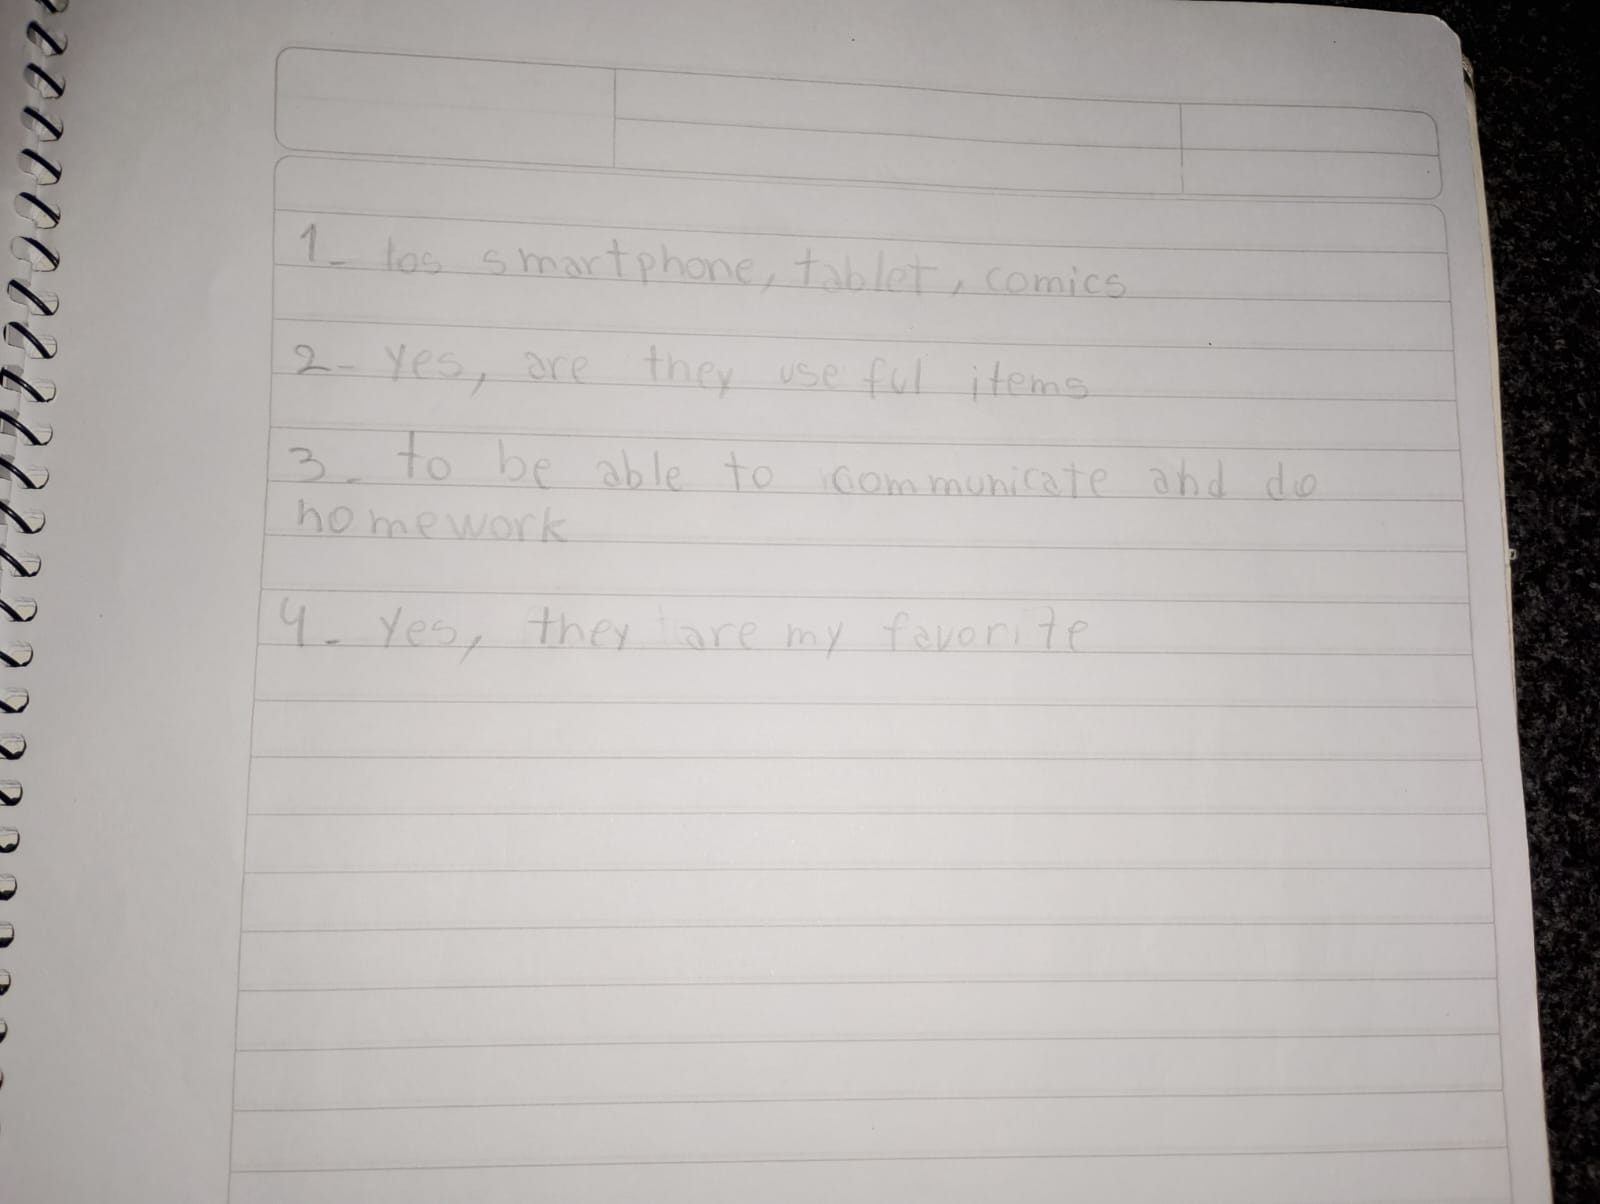 1- los smartphone, tablet, comics
2- Yes, are they use ful items
3- to be able to communicate and do
homework
4- Yes, they are my favorite